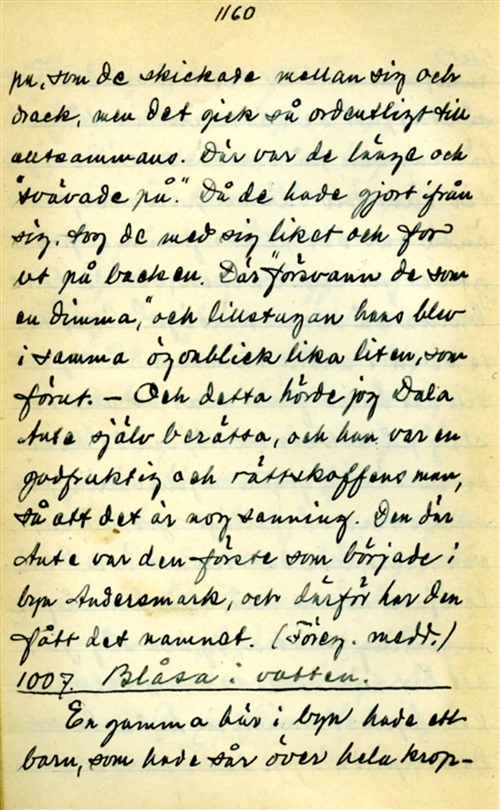 1160
pu, som de skickade mellan sig och
drack, men det gick så ordentligt till
alltsammans. Där var de länge och
"svävade på." Då de hade gjort ifrån
sig, tog de med sig liket och for
ut på backen. Där "försvann de som
en dimma," och lillstugan hans blev
i samma ögonblick lika liten, som
förut. — Och detta hörde jag Dala
Ante själv berätta, och han var en
gudfruktig och rättskaffens man,
så att det är nog sanning. Den där
Ante var den förste som började i
byn Andersmark, och därför har den
fått det namnet. (Föreg. medd.)
1007. Blåsa i vatten.
En gumma här i byn hade ett
barn, som hade sår över hela krop-